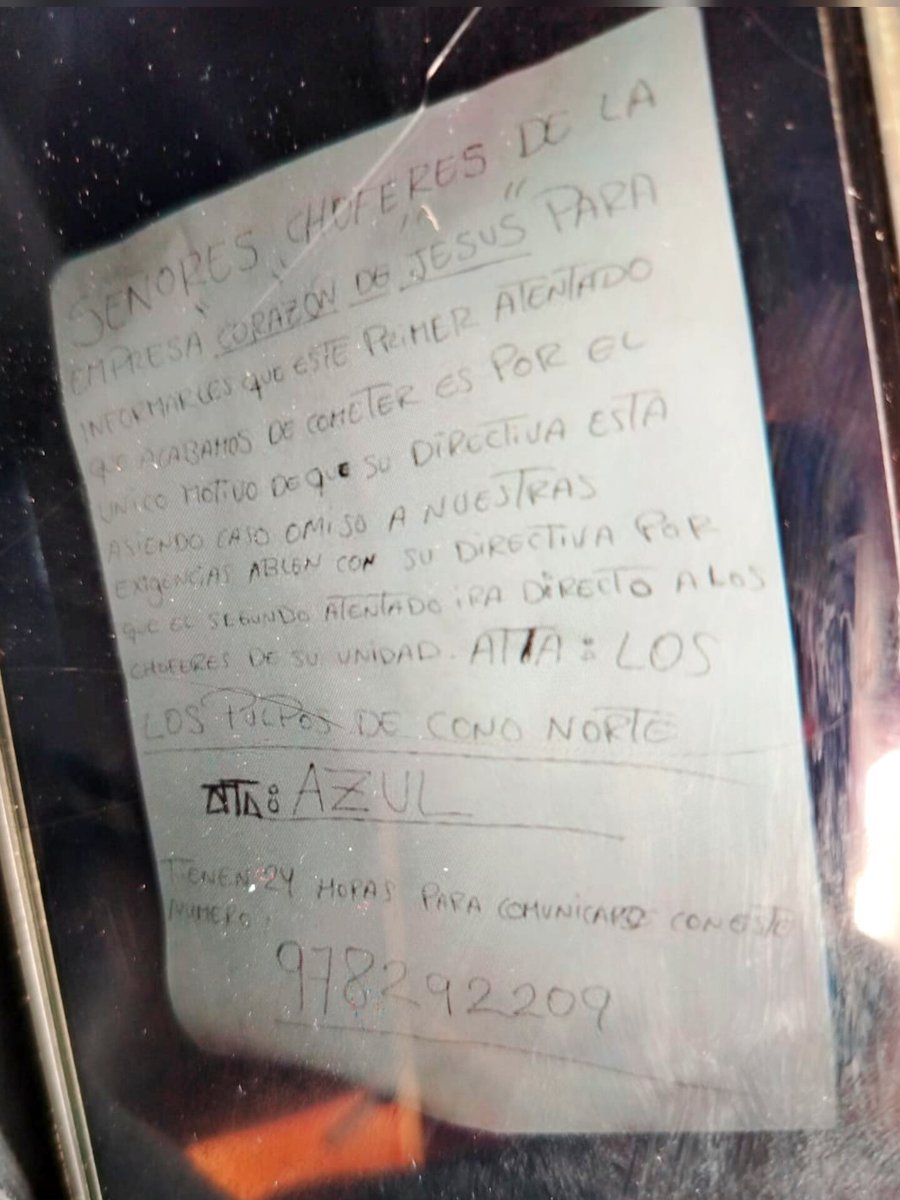 SEÑORES CHOFERES DE LA
EMPRESA "CORAZÓN DE JESUS" PARA
INFORMARLES QUE ESTE PRIMER ATENTADO
QUE ACABAMOS DE COMETER ES POR EL
UNICO MOTIVO DE QUE SU DIRECTIVA ESTA
ASIENDO CASO OMISO A NUESTRAS
EXIGENCIAS ABLEN CON SU DIRECTIVA POR
QUE EL SEGUNDO ATENTADO IRA DIRECTO A LOS
CHOFERES DE SU UNIDAD. ATTA: LOS
LOS PULPOS DE CONO NORTE
ATTA: AZUL
TIENEN 24 HORAS PARA COMUNICARSE CON ESTE
NUMERO:
978292209